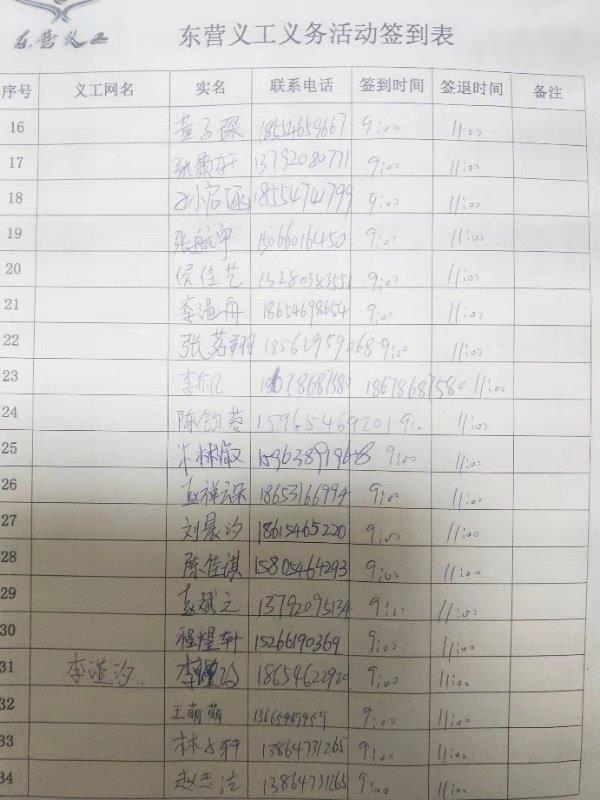 东营义工
东营义工义务活动签到表
序号 义工网名 实名 联系电话 签到时间 签退时间 备注
16 18554659667 9:00 11:00
17 13792080771 9:00 11:00
18 18554741799 9:00 11:00
19 张航宇 15066016450 9:00 11:00
20 侯佳艺 13280383551 9:00 11:00
21 18654698654 9:00 11:00
22 张茗翔 18562959068 9:00 11:00
23 18678687580 11:00
24 陈钧蓉 15965469201 9:00 11:00
25 9:00 11:00
26 18653166994 9:00 11:00
27 刘晨汐 18615465220 9:00 11:00
28 陈佳琪 15805464293 9:00 11:00
29 13792095134 9:00 11:00
30 程煜轩 15266190369 9:00 11:00
31 18654622920 9:00 11:00
32 王萌萌 9:00 11:00
33 林子轩 13864731265 9:00 11:00
34 赵志洁 13864731265 9:00 11:00